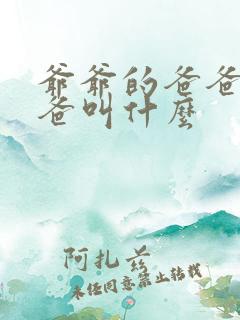 爺爺的爸爸
爸叫什麼
阿扎兹
未任同意禁止转载